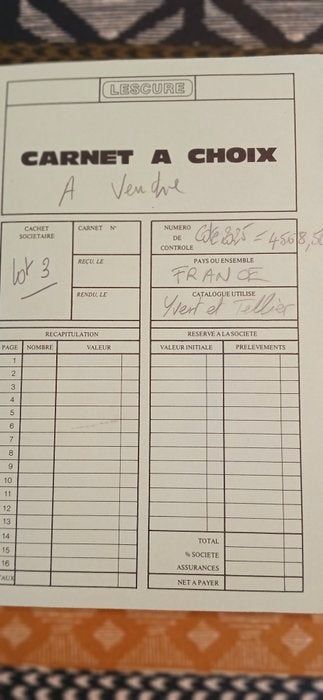 LESCURE
CARNET A CHOIX
A Vendre
CACHET
SOCIETAIRE
Lot 3
CARNET N°
REÇU, LE
RENDU, LE
NUMERO
DE
CONTROLE
Cote 2025 = 4568,50
PAYS OU ENSEMBLE
FRANCE
CATALOGUE UTILISE
Yvert et Tellier
RECAPITULATION
PAGE NOMBRE VALEUR
1
2
3
4
5
6
7
8
9
10
11
12
13
14
15
16
TAUX
RESERVE A LA SOCIETE
VALEUR INITIALE PRELEVEMENTS
TOTAL
% SOCIETE
ASSURANCES
NET A PAYER